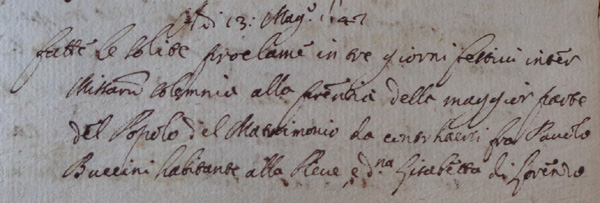 Adi 13: Magº: 1747
fatte le solite proclame in tre giorni festivi inter
Missarũ solemnia alla prẽntia della maggior parte
del Popolo del Matrimonio da contrhaersi fra Pauolo
Buccini habitante alla Pieve, e dna Lisabetta di Lorenzo